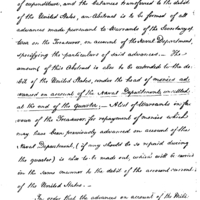 of expenditure, and the balances transferred to the debit
of the United States, an Abstract is to be formed of all
advances made pursuant to Warrants of the Secretary of
War on the Treasurer, on account of the Naval Department,
specifying the particulars of said advances. The
amount of this Abstract is also to be extended to the de-
bit of the United States, under the head of monies ad-
vanced on account of the Naval Department, unsettled
at the end of the quarter. A list of Warrants in fa-
vour of the Treasurer for repayment of monies which
may have been previously advanced on account of the
Naval Department, (if any should be so repaid during
the quarter) is also to be made out, which will be carried
in the same manner to the debit of the account current
of the United States.
In order that the advances on account of the Mili-